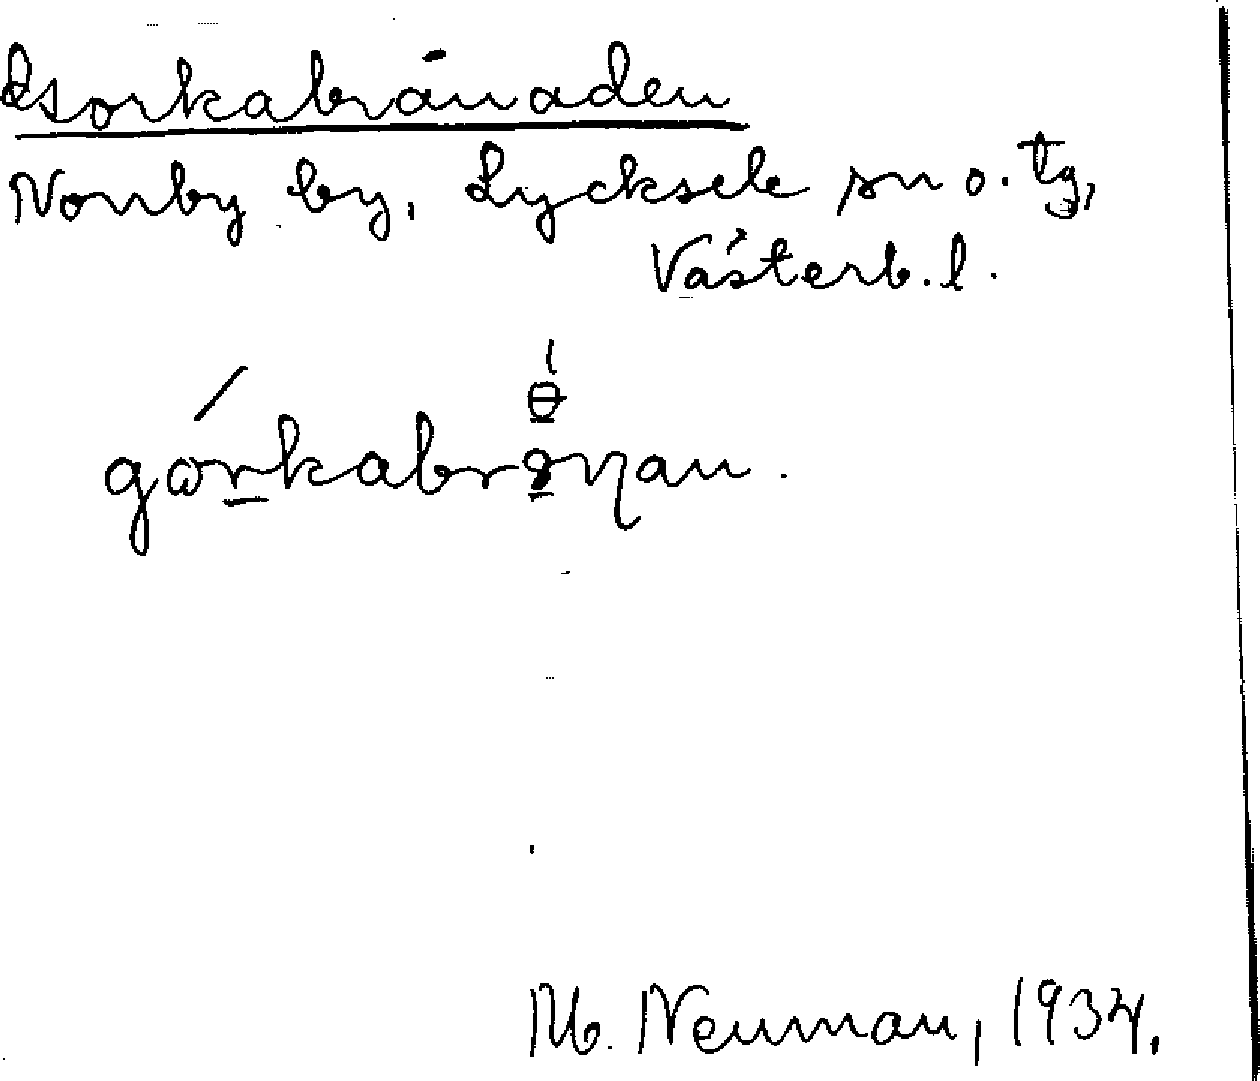 Gorkabränaden
Norrby by, Lycksele sn o. tg,
Västerb. l.
M. Neuman, 1934.